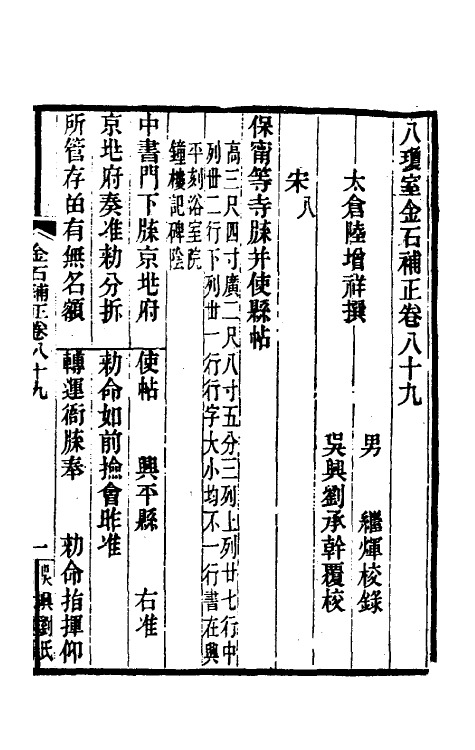 八瓊室金石補正卷八十九
太倉陸增祥撰
男 繼煇校錄
吳興劉承幹覆校
宋八
保甯等寺牒并使縣帖
高三尺四寸廣二尺八寸五分三列上列廿七行中
列卅二行下列卅一行行字大小均不一行書在興
平刻浴室院
鐘樓記碑陰
中書門下牒京地府
使帖 興平縣 右准
京地府奏准勅分拆
勅命如前撿會昨准
所管存留有無名額
轉運衙牒奉 勅命指揮仰
金石補正卷八十九
一
吳興劉氏